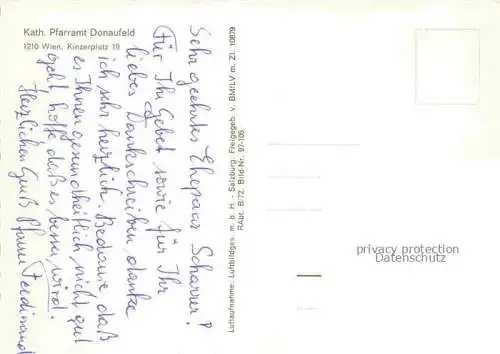 Kath. Pfarramt Donaufeld
1210 Wien, Kinzerplatz 19
Sehr geehrtes Ehepaar Scharrer!
Für Ihr Gebet sowie für Ihr
liebes Dankschreiben danke
ich sehr herzlich. Bedaure daß
es Ihnen gesundheitlich nicht gut
geht hoffe, daß es besser wird.
Herzlichen Gruß Pfarrer Ferdinand
Luftaufnahme: Luftbildges. m. b. H. - Salzburg. Freigegeb. v. BMfLV m. Zl. 10879
RAbt. B/72, Bild-Nr. 97-105
privacy protection
Datenschutz